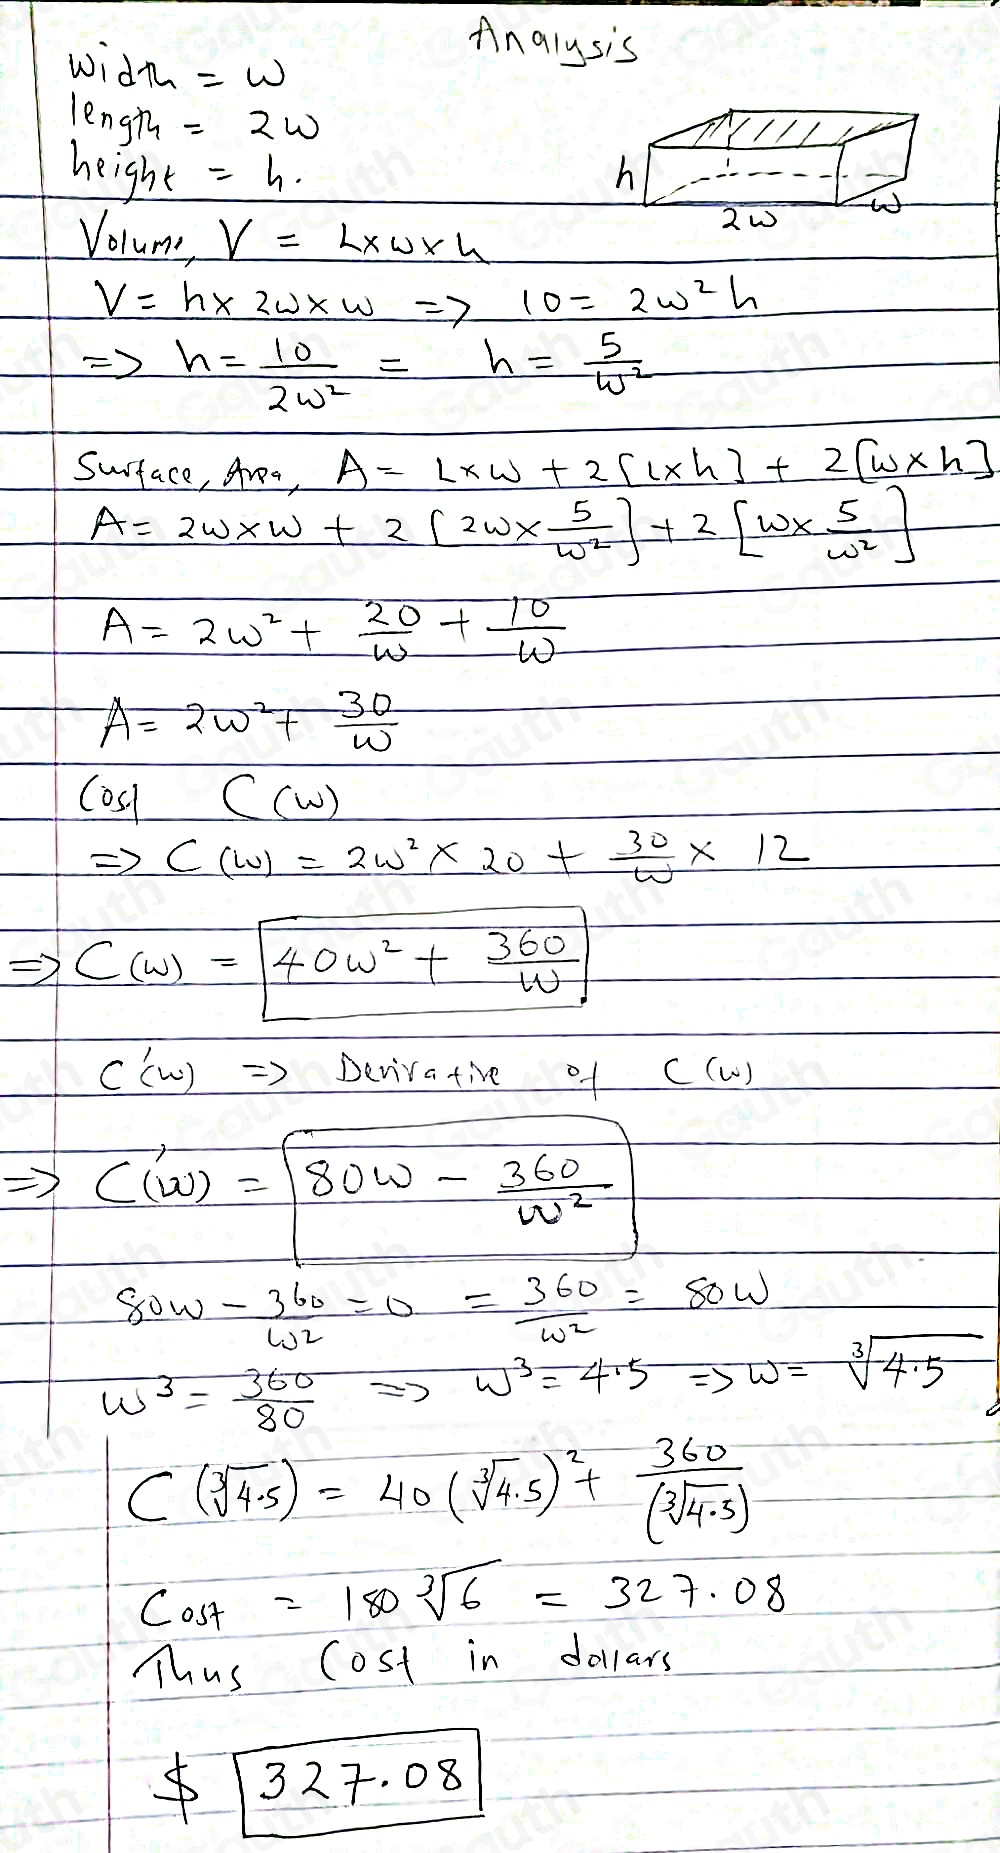 Analysis
width = w
length = 2w
height = h.
h
2w
w
Volume, V = L×w×h
V = h × 2w × w => 10 = 2w² h
=> h = 10/2w² = h = 5/w²
Surface, Area, A = L×w + 2[L×h] + 2[w×h]
A = 2w×w + 2[2w× 5/w²] + 2[w× 5/w²]
A = 2w² + 20/w + 10/w
A = 2w² + 30/w
Cost C(w)
=> C(w) = 2w² × 20 + 30/w × 12
=> C(w) = 40w² + 360/w
C'(w) => Derivative of C(w)
=> C'(w) = 80w - 360/w²
80w - 360/w² = 0 = 360/w² = 80w
w³ = 360/80 => w³ = 4.5 => w = ∛4.5
C(∛4.5) = 40(∛4.5)² + 360/(∛4.5)
Cost = 180∛6 = 327.08
Thus Cost in dollars
$ 327.08
Gauth